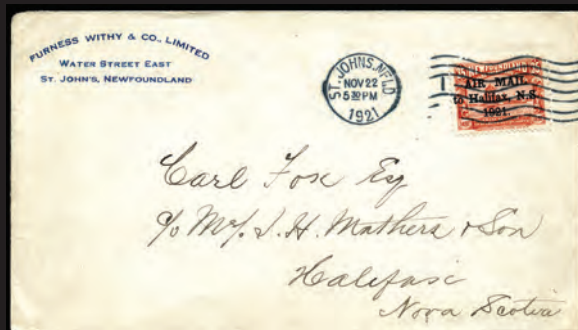 FURNESS WITHY & CO., LIMITED
WATER STREET EAST
ST. JOHN'S, NEWFOUNDLAND
ST. JOHNS. NFLD
NOV 22
5 30 PM
1921
AIR MAIL
to Halifax, N.S.
1921.
Carl Fox Esq
c/o M/s. I. H. Mathers & Son
Halifax
Nova Scotia